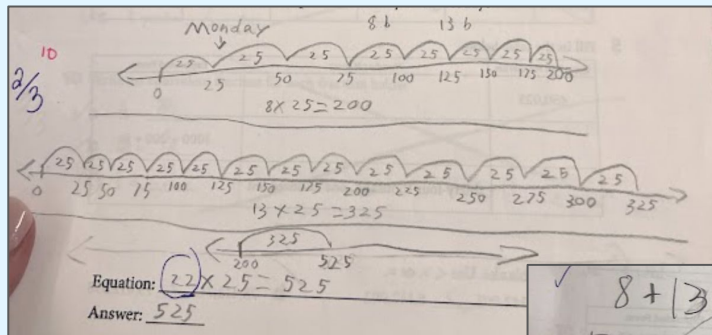 8 b 13 b
Monday
10
2/3
25 25 25 25 25 25 25 25
0 25 50 75 100 125 150 175 200
8 × 25 = 200
25 25 25 25 25 25 25 25 25 25 25 25 25
0 25 50 75 100 125 150 175 200 225 250 275 300 325
13 × 25 = 325
325
200 525
Equation: 22 × 25 = 525
Answer: 525
8 + 13